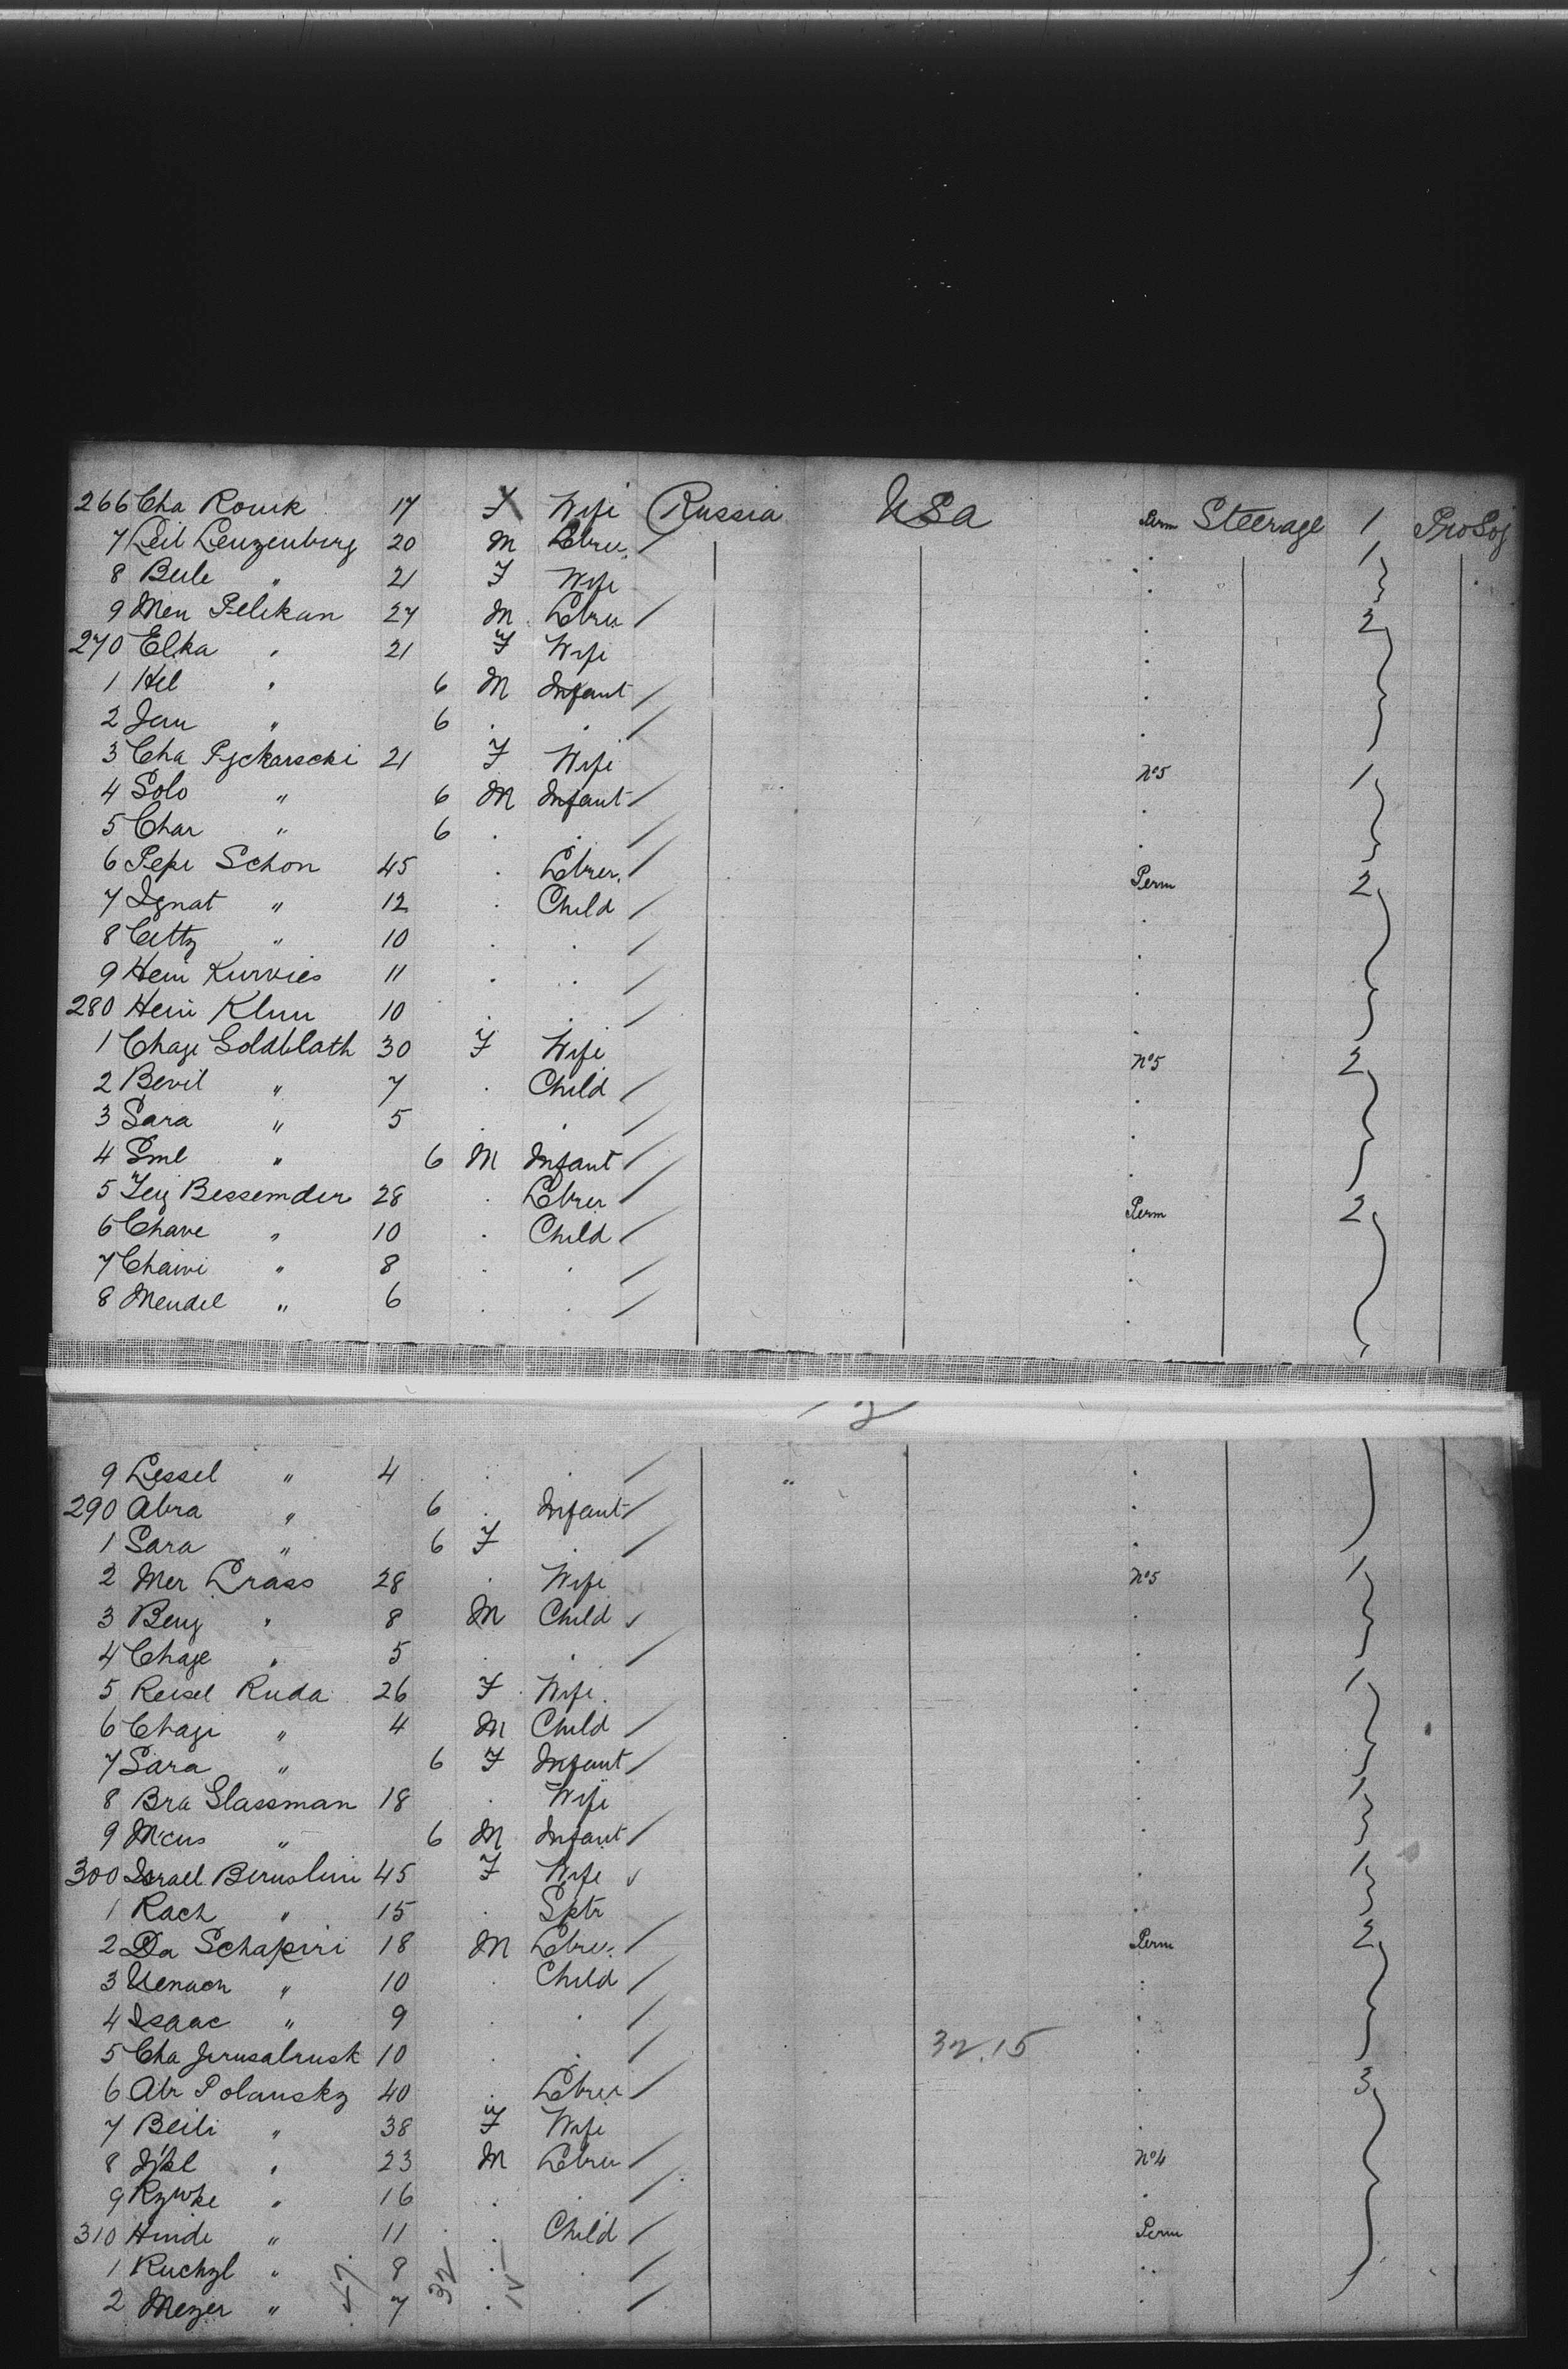 266 Cha Rouik 17 F Wife Russia USa Perm Steerage 1 ProSoj
7 Leib Leuzenberg 20 M Lbrer. / . 1
8 Beile " 21 F Wife .
9 Men Pelikan 27 M Lbrer / . 2
270 Elka " 21 F Wife .
1 Hel " 6 M Infant / .
2 Jan " 6 . . / .
3 Cha Pyckarscki 21 F Wife No5 1
4 Solo " 6 M Infant / .
5 Char " 6 . . / .
6 Pepi Schon 45 . Lbrer. / Perm 2
7 Ignat " 12 . Child / .
8 " 10 . . / .
9 Hein Kurvies 11 . . / .
280 Hein Klun 10 . . / .
1 Chaje Goldblath 30 F Wife No5 2
2 Bevil " 7 . Child / .
3 Sara " 5 . . / .
4 Sml " 6 M Infant / .
5 Bessemder 28 . Lbrer / Perm 2
6 Chave " 10 . Child / .
7 Chaiwi " 8 . . / .
8 Mendel " 6 . . / .
9 Lessel " 4 . . / " .
290 Abra " 6 . Infant / .
1 Sara " 6 F . / .
2 Mer Grass 28 . Wife No5 1
3 Benj " 8 M Child / .
4 Chaje " 5 . . / .
5 Reisel Ruda 26 F Wife . 1
6 Chaje " 4 M Child / .
7 Sara " 6 F Infant / .
8 Bra Glassman 18 . Wife . 1
9 Mcus " 6 M Infant / .
300 Israel Beruslini 45 F Wife / . 1
1 Rach " 15 . Sptr .
2 Da Schapiri 18 M Lbrer. / Perm 2
3 " 10 . Child / .
4 Isaac " 9 . . / .
5 Cha Jerusalrusk 10 . . / 32.15 .
6 Abr Polansky 40 . Lbrer / . 3
7 Beili " 38 F Wife .
8 " 23 M Lbrer / No4
9 Rywke " 16 . . / .
310 Hinde " 11 . Child / Perm
1 Ruchzl " 8 . . / .
2 Mezer " 7 . . / .
47 32 15